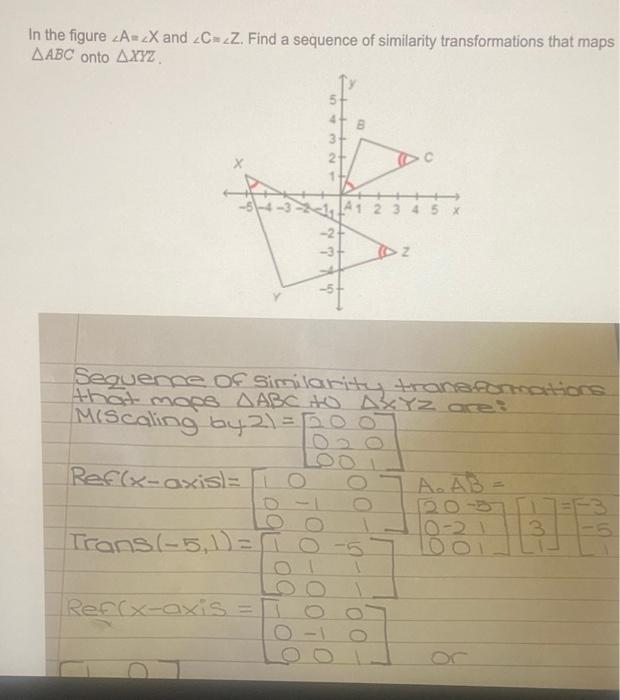 In the figure ∠A≅∠X and ∠C≅∠Z. Find a sequence of similarity transformations that maps
△ABC onto △XYZ.
y
5
4 B
3
2 C
X
1
-5 -4 -3 -2 -1 A 1 2 3 4 5 x
-1
-2
-3 Z
-4
Y -5
Sequence of similarity transformations
that maps △ABC to △XYZ are:
M(Scaling by 2) = [2 0 0
0 2 0
0 0 1]
Ref(x-axis) = [1 0 0 A. AB =
0 -1 0 [2 0 -5 [1 = [-3
0 0 1] 0 -2 1 3 -5
Trans(-5,1) = [1 0 -5 0 0 1] 1] 1
0 1 1
0 0 1]
Ref(x-axis = [1 0 0
0 -1 0
0 0 1] or
[1 0]